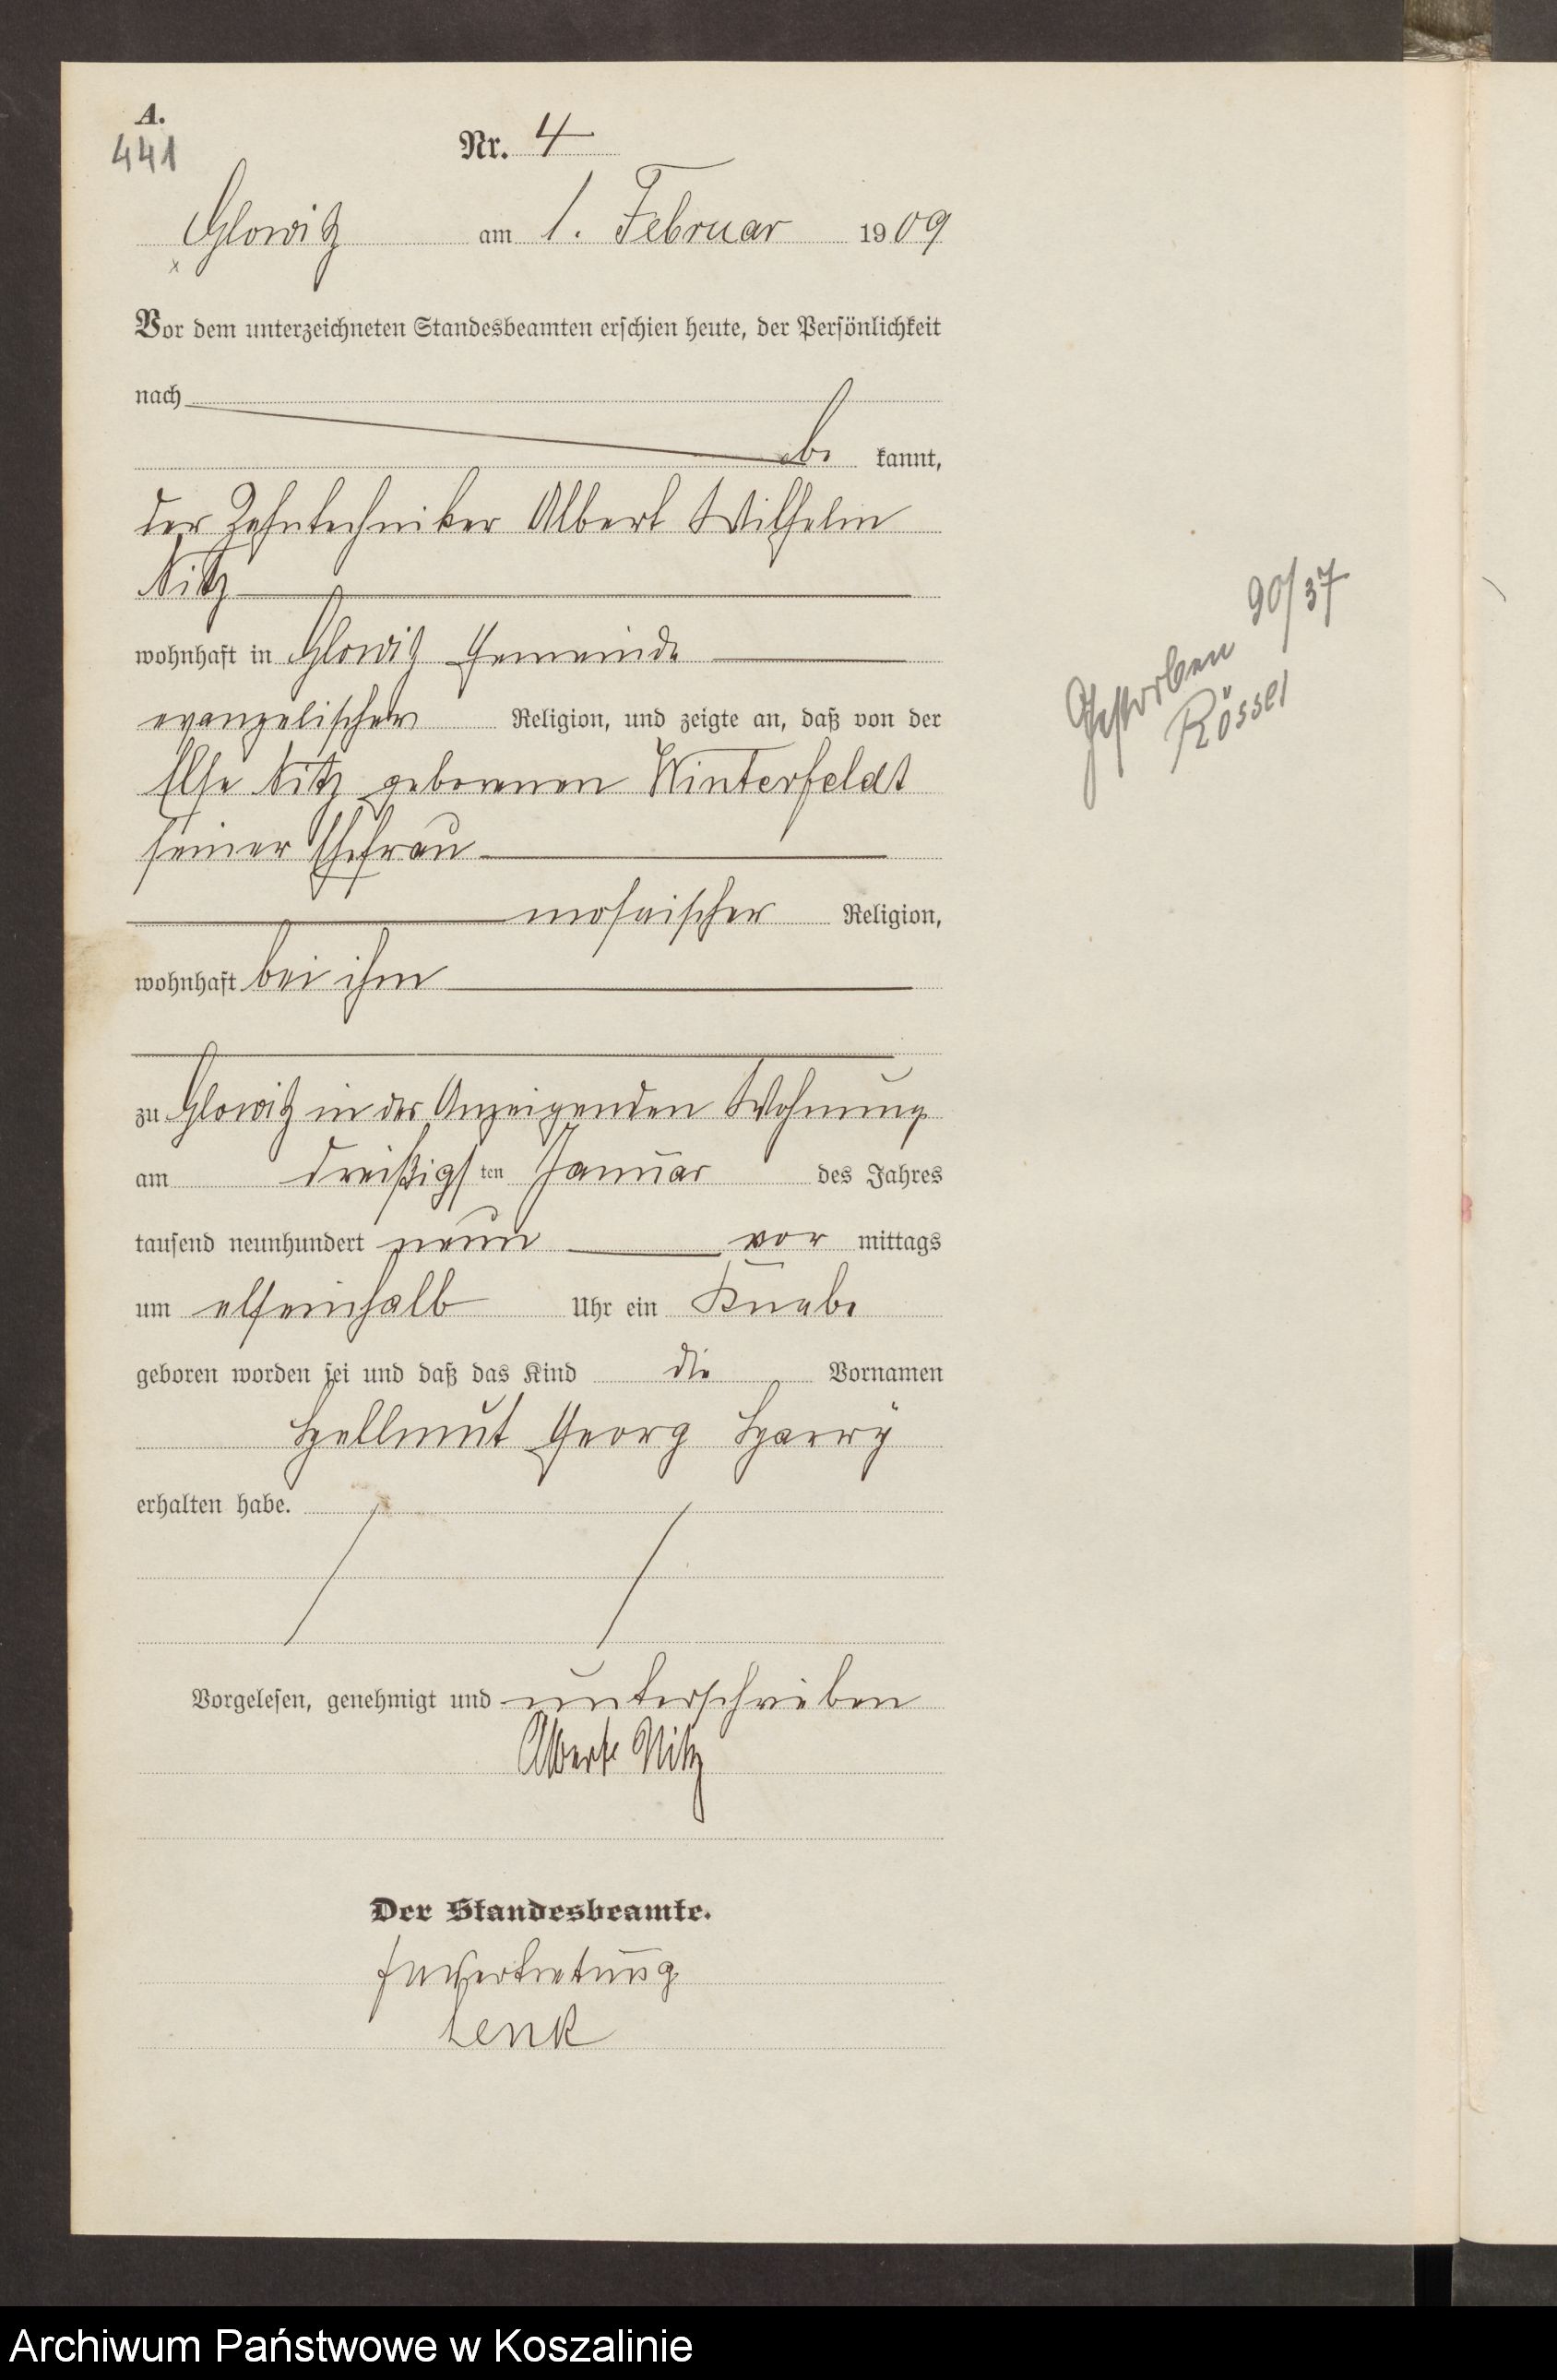 A.
441
Nr. 4
Glowitz am 1. Februar 1909
Vor dem unterzeichneten Standesbeamten erschien heute, der Persönlichkeit
nach
be kannt,
der Zahntechniker Albert Wilhelm
Nitz
wohnhaft in Glowitz Gemeinde
evangelischer Religion, und zeigte an, daß von der
Else Nitz geborenen Winterfeldt
seiner Ehefrau
mosaischer Religion,
wohnhaft bei ihm
zu Glowitz in der Anzeigenden Wohnung
am dreißigsten Januar des Jahres
tausend neunhundert neun vor mittags
um elfeinhalb Uhr ein Knabe
geboren worden sei und daß das Kind die Vornamen
Hellmut Georg Harry
erhalten habe.
Vorgelesen, genehmigt und unterschrieben
Albert Nitz
Der Standesbeamte.
In Vertretung
Lenk
Gestorben 90/37
Rössel
Archiwum Państwowe w Koszalinie